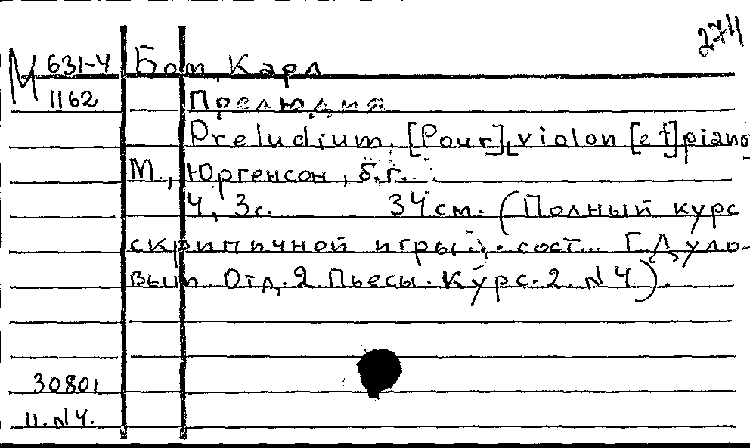 274
М 631-4 Бом, Карл
1162 Прелюдия
Preludium, [Pour] violon [et] piano
М., Юргенсон, б.г.
4, 3с. 34 см. (Полный курс
скрипичной игры, сост. Г. Дуло-
вым. Отд. 2. Пьесы. Курс. 2. №4).
30801
11. №4.